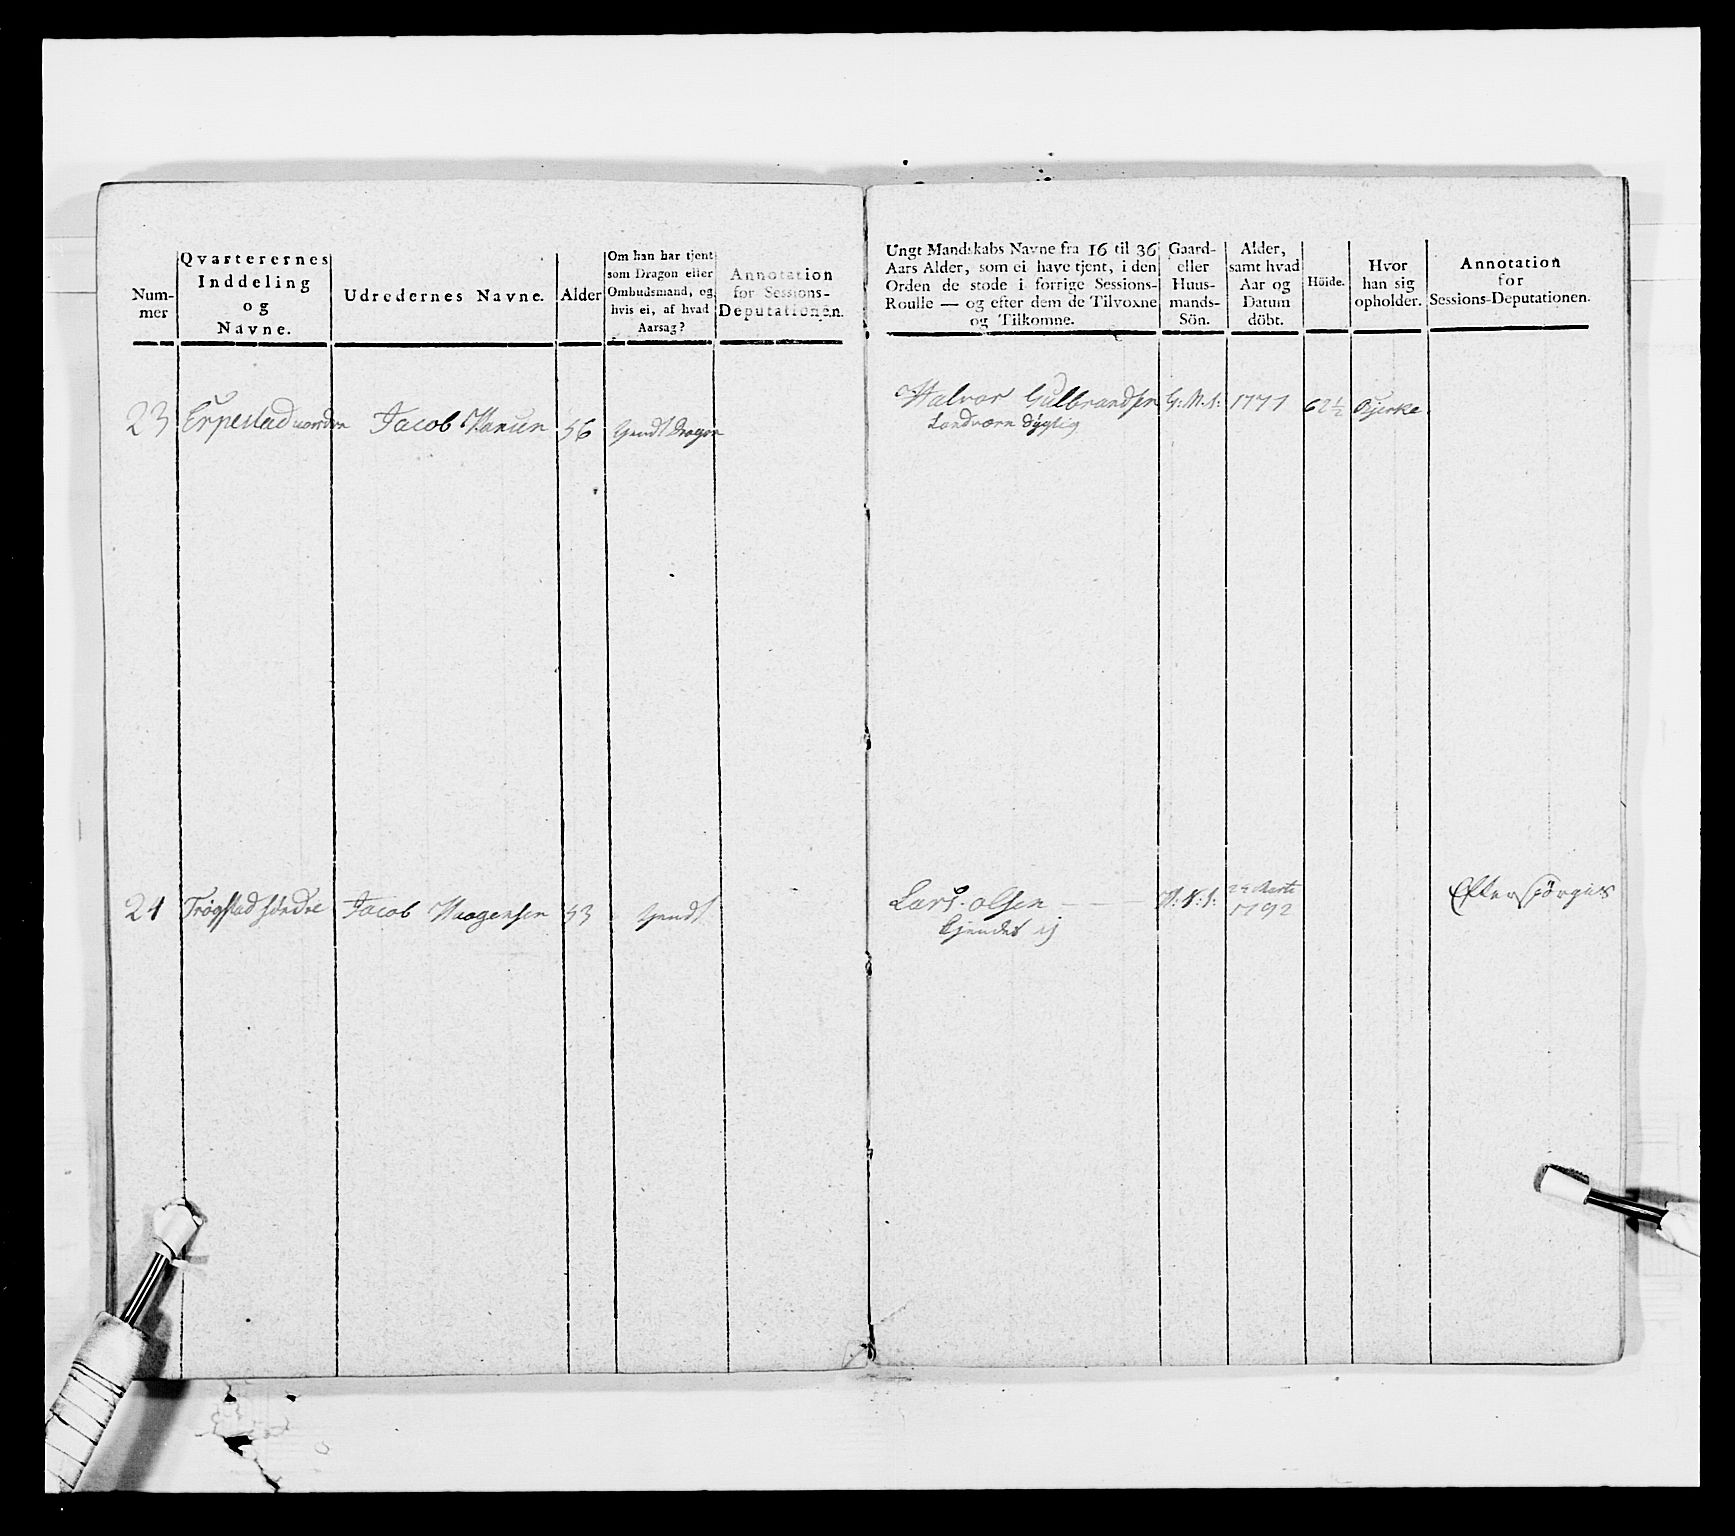 Num-
mer
Qvarterernes
Inddeling
og
Navne.
Udredernes Navne.
Alder
Om han har tjent
som Dragon eller
Ombudsmand, og
hvis ei, af hvad
Aarsag?
Annotation
for Sessions-
Deputationen.
23 Erpestad nordre Jacob Hansen 56 tjendt Dragon
24 Trøgstad søndre Jacob Haagensen 53 tjendt
Ungt Mandskabs Navne fra 16 til 36
Aars Alder, som ei have tjent, i den
Orden de stode i forrige Sessions-
Roulle — og efter dem de Tilvoxne
og Tilkomne.
Gaard-
eller
Huus-
mands-
Sön.
Alder,
samt hvad
Aar og
Datum
döbt.
Höide.
Hvor
han sig
opholder.
Annotation
for
Sessions-Deputationen.
Halvor Gulbrandsen G: M. S: 1771 62½ Bjerke
Landværn dygtig
Lars Olsen — — 24 Marti 1792 Efterspørges
kjendes ej